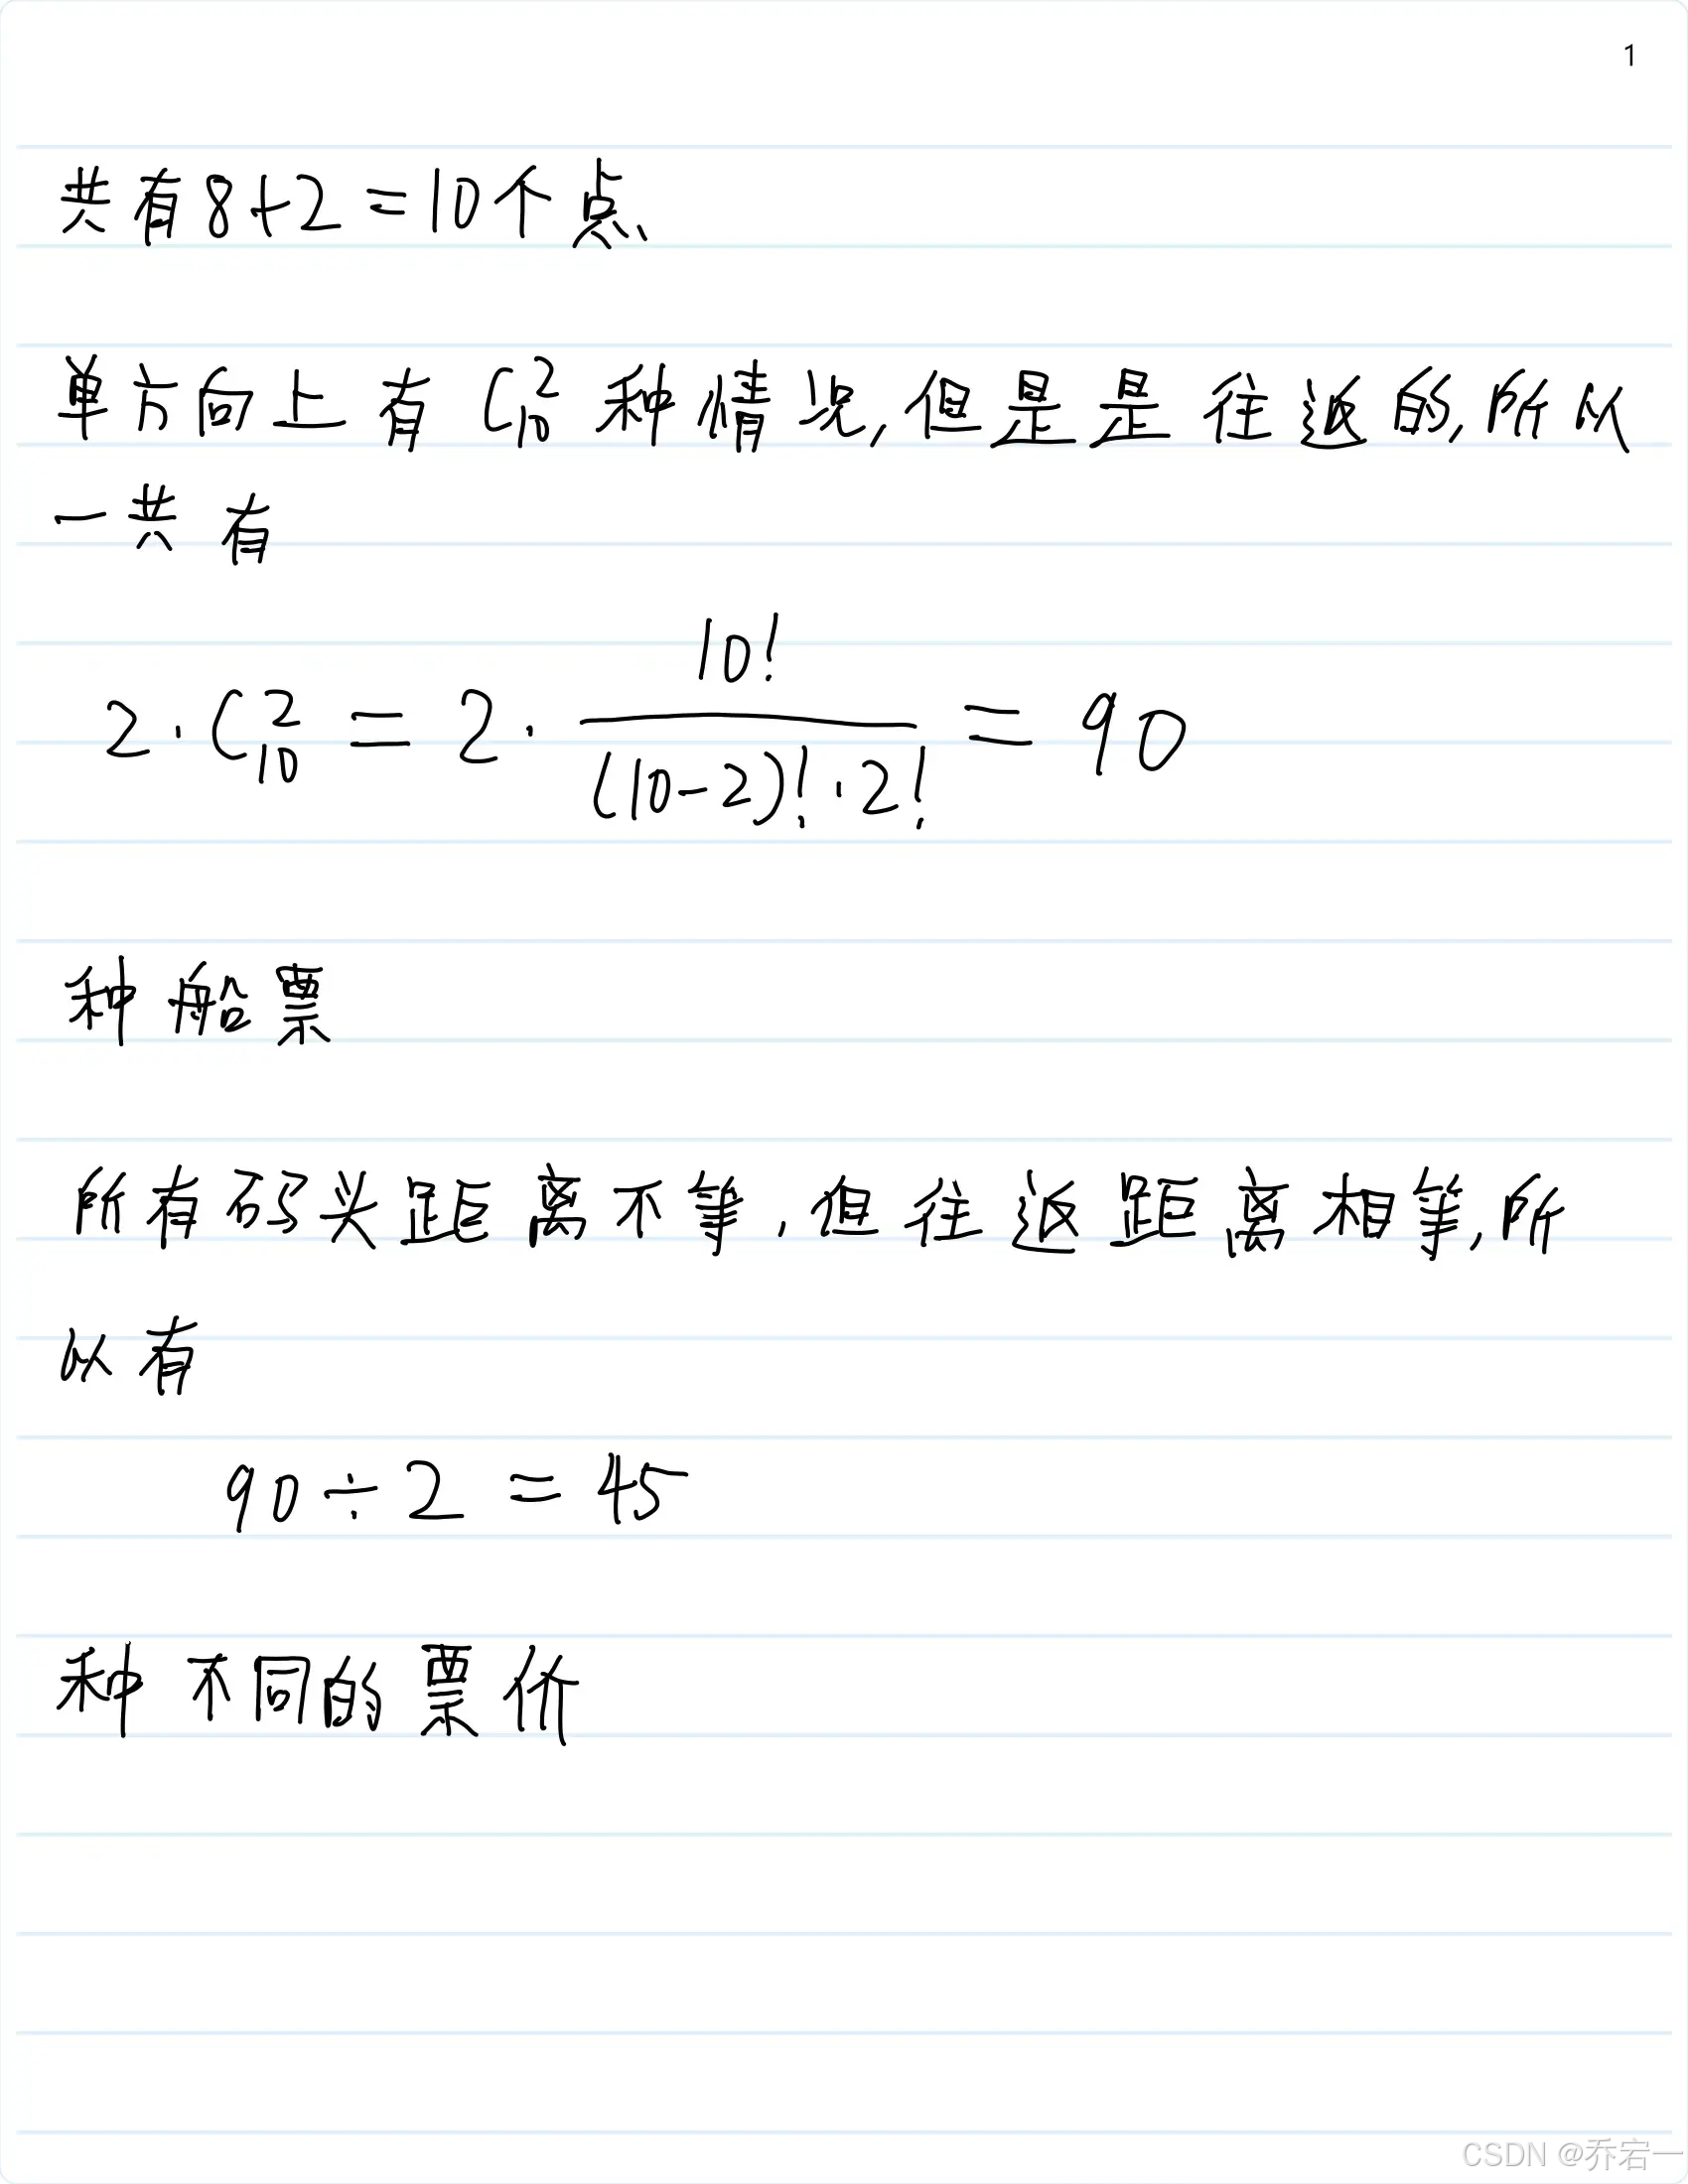 1
共有8+2=10个点
单方向上有 C₁₀² 种情况,但是是往返的,所以
一共有
2·C₁₀² = 2· 10! / (10-2)!·2! = 90
种船票
所有码头距离不等,但往返距离相等,所
以有
90÷2=45
种不同的票价
CSDN @乔宕一